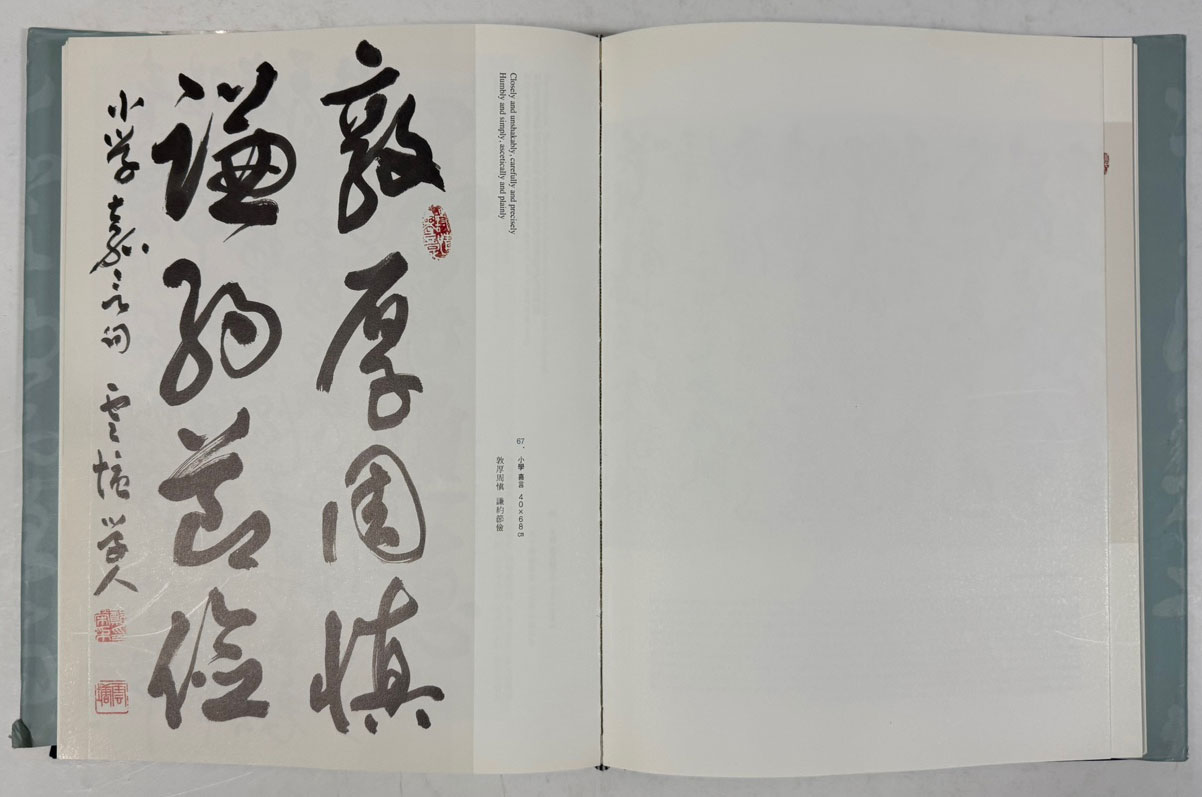 敦厚周慎
謙約節儉
小学嘉言句 雲 学人
Closely and unshakably, carefully and precisely
Humbly and simply, ascetically and plainly
67. 小學 嘉言 40×68㎝
敦厚周慎 謙約節儉